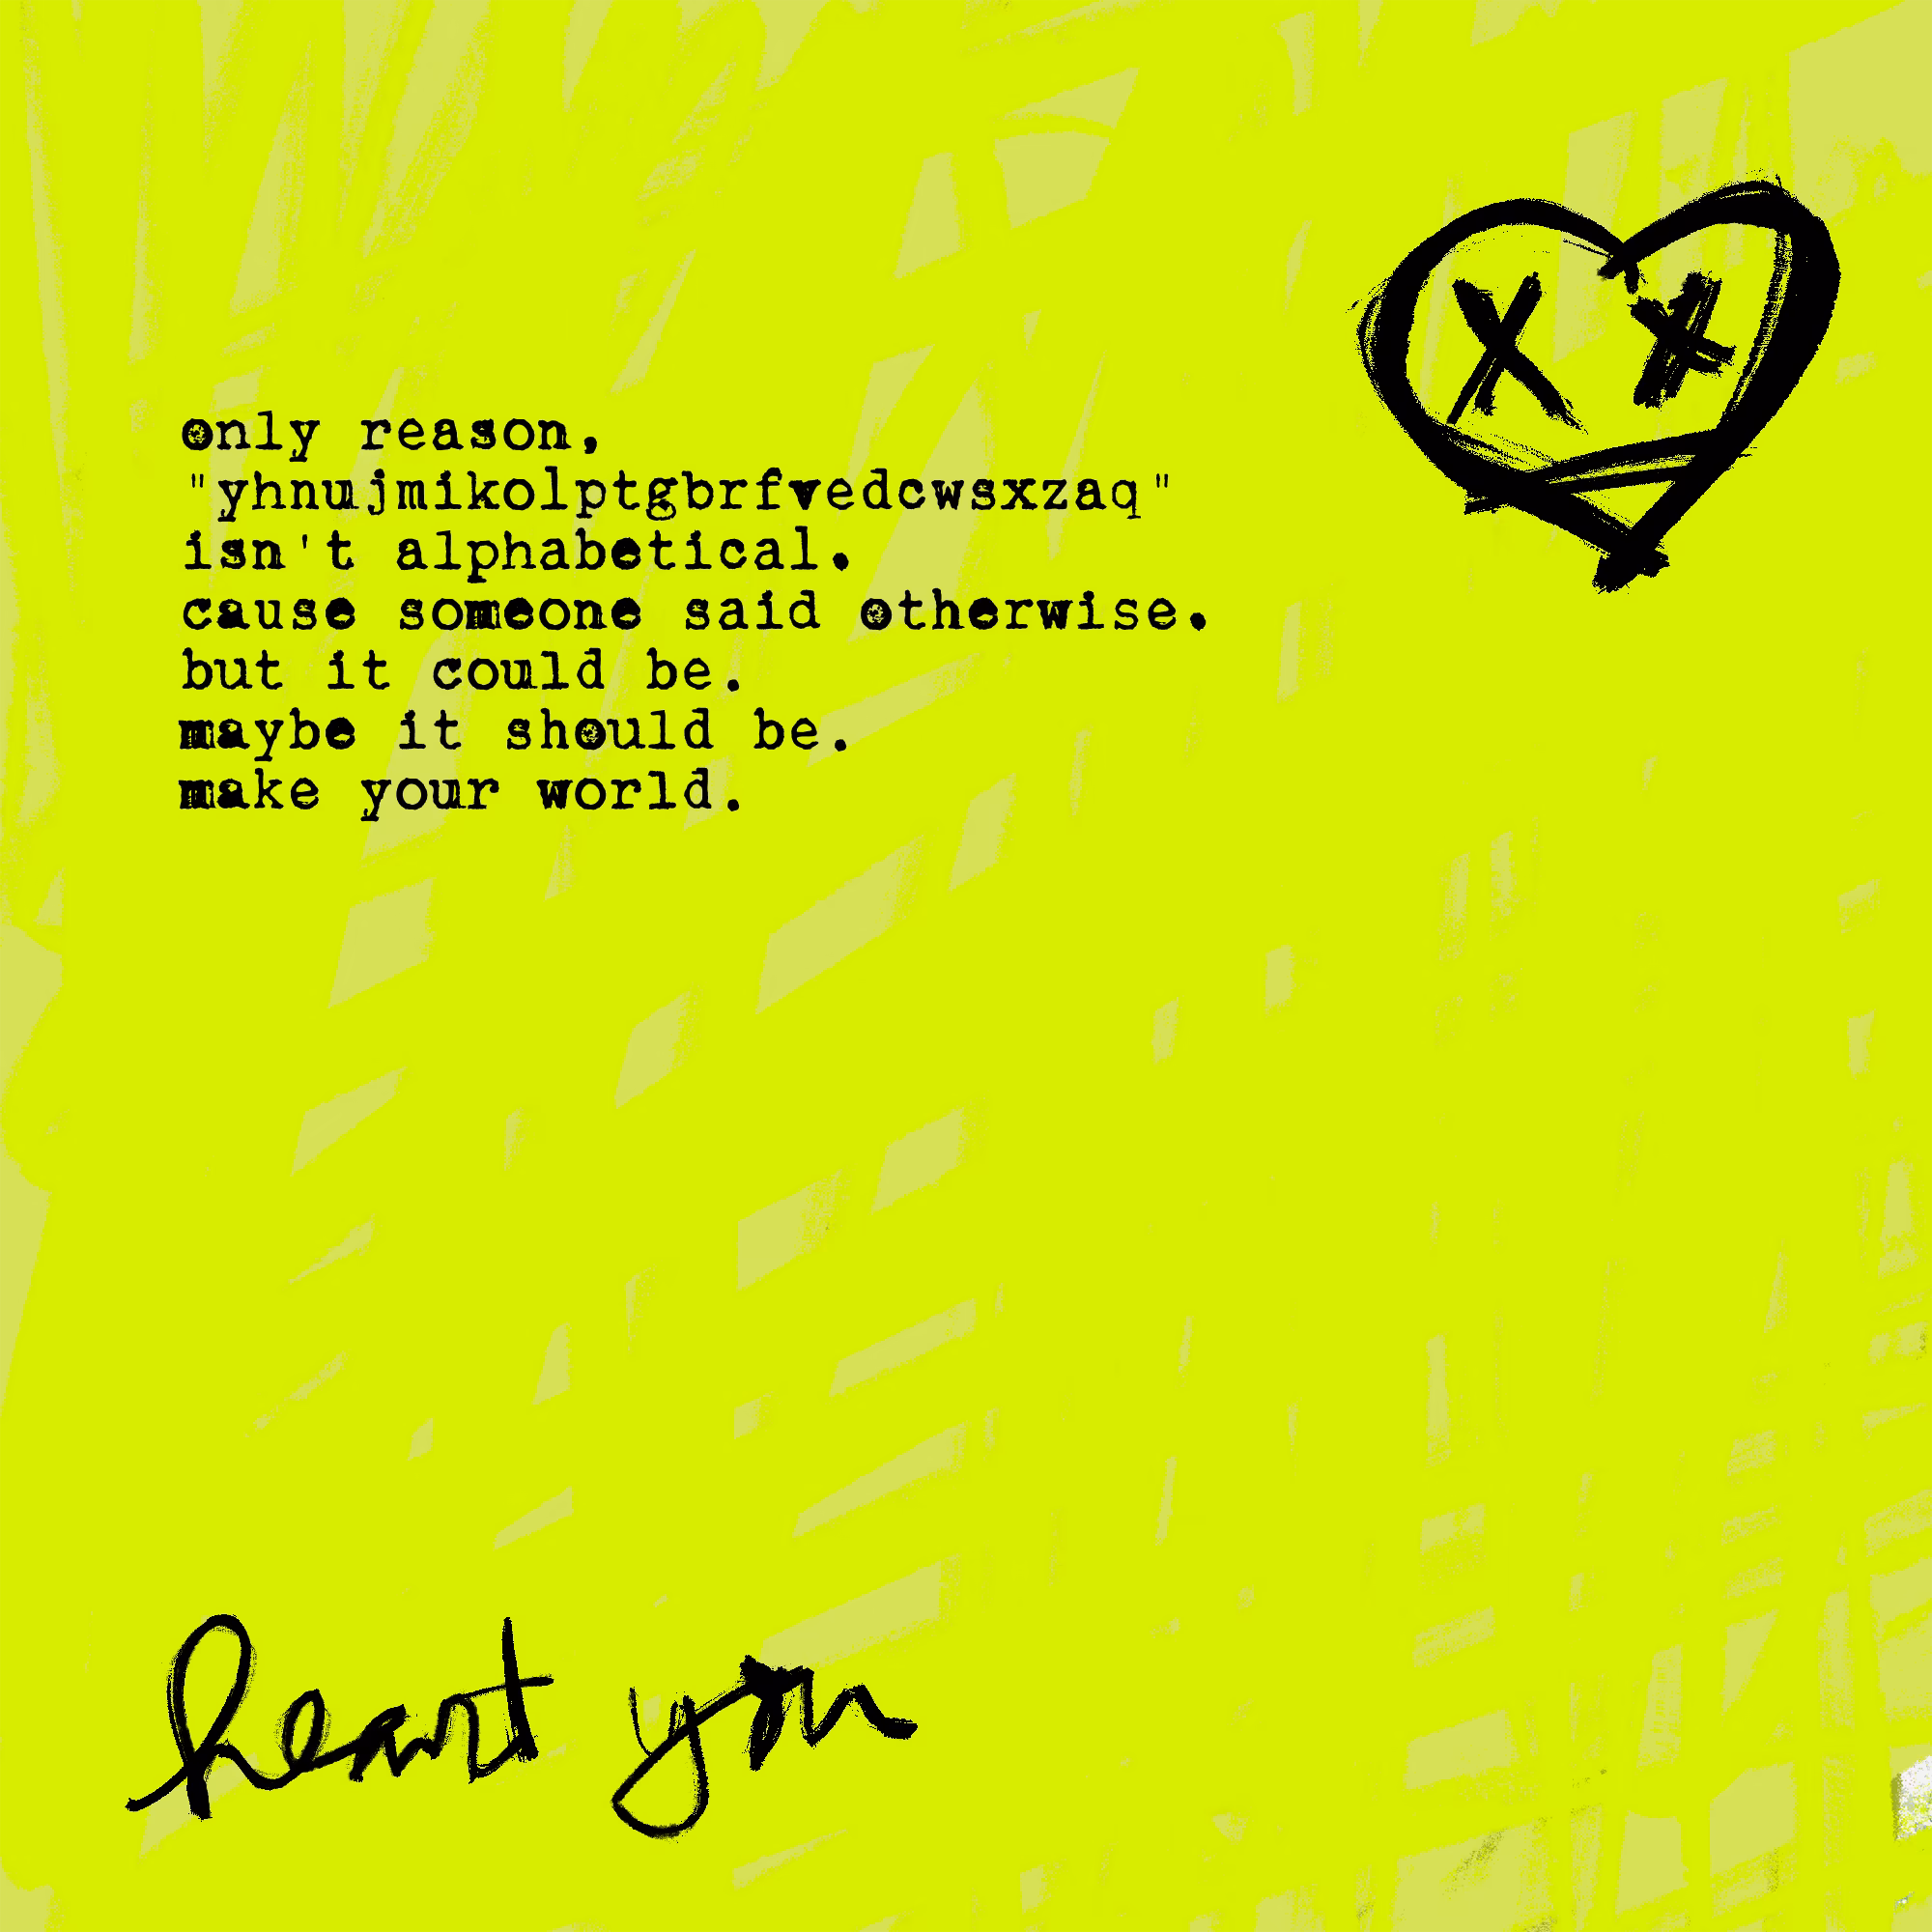 only reason,
"yhnujmikolptgbrfvedcwsxzaq"
isn't alphabetical.
cause someone said otherwise.
but it could be.
maybe it should be.
make your world.
heart you